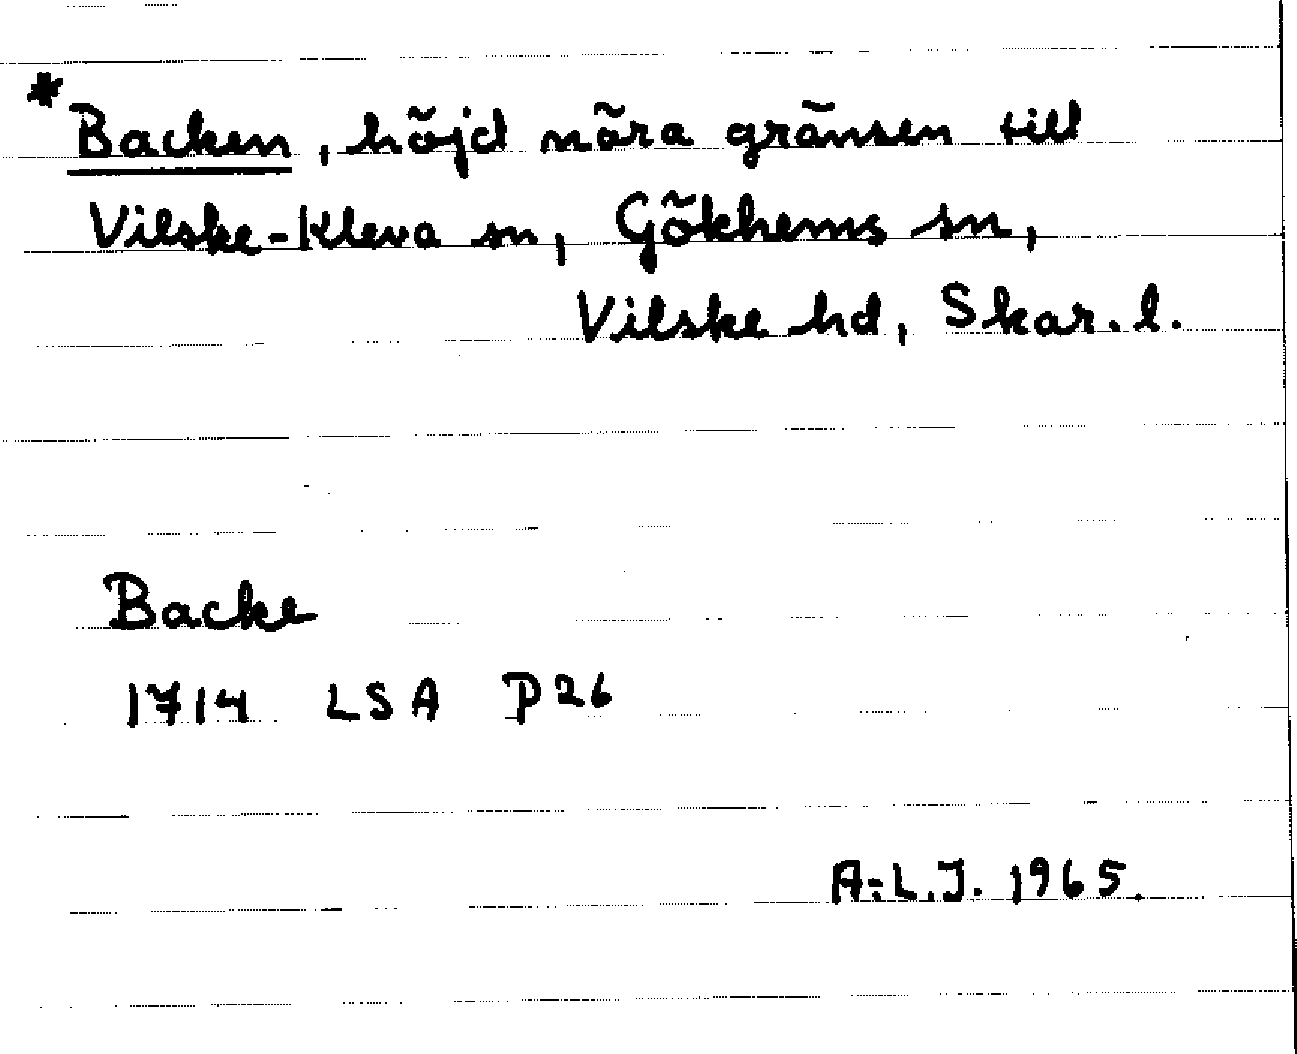 *Backen, höjd nära gränsen till
Vilske-Kleva sn, Gökhems sn,
Vilske hd, Skar. l.
Backe
1714 LSA P26
A-L.J. 1965.